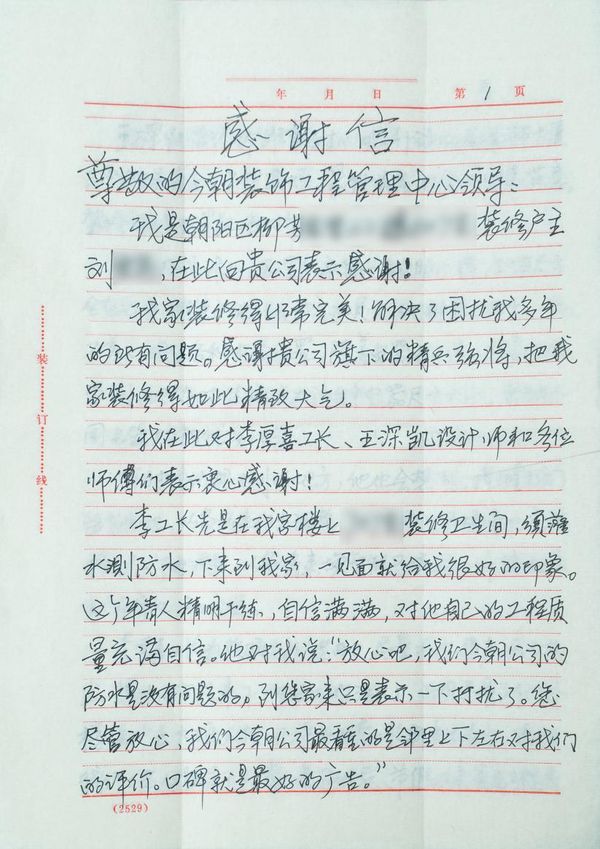 年 月 日 第 1 页
感谢信
尊敬的今朝装饰工程管理中心领导：
我是朝阳区柳芳 装修户主
刘 ，在此向贵公司表示感谢！
我家装修得非常完美！解决了困扰我多年
的所有问题。感谢贵公司旗下的精兵强将，把我
家装修得如此精致大气。
我在此对李厚喜工长、王深凯设计师和各位
师傅们表示衷心感谢！
李工长先是在我家楼上 装修卫生间，须灌
水测防水，下来到我家，一见面就给我很好的印象。
这个年青人精明干练，自信满满，对他自己的工程质
量充满自信。他对我说：“放心吧，我们今朝公司的
防水是没有问题的，到您家来只是表示一下打扰了。您
尽管放心，我们今朝公司最看重的是邻里上下左右对我们
的评价。口碑就是最好的广告。”
装
订
线
(2529)